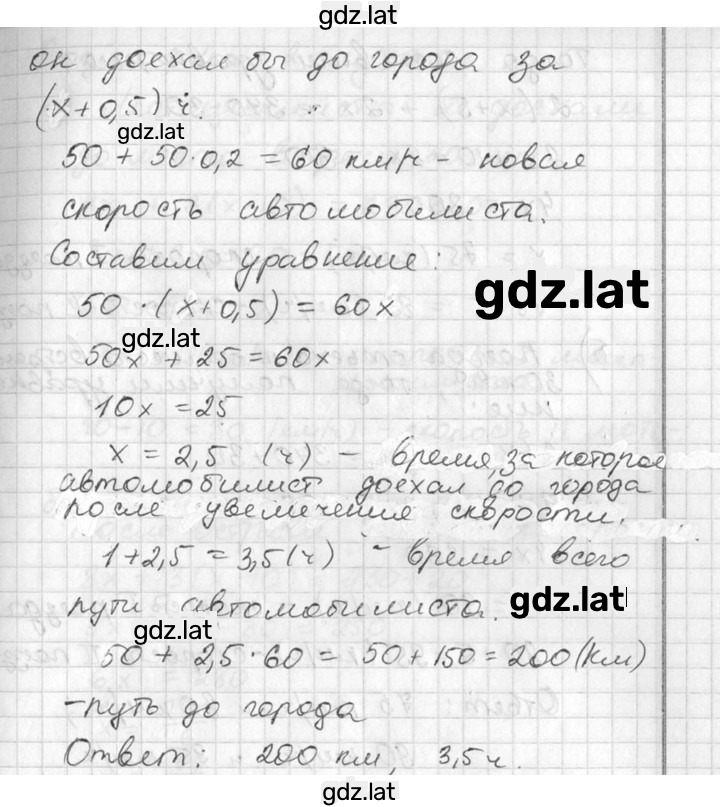 gdz.lat
он доехал бы до города за
(x+0,5) ч.
gdz.lat
50 + 50·0,2 = 60 км/ч - новая
скорость автомобилиста.
Составим уравнение:
gdz.lat
50 · (x+0,5) = 60x
gdz.lat
50x + 25 = 60x
10x = 25
x = 2,5 (ч) - время, за которое
автомобилист доехал до города
после увеличения скорости.
1+2,5 = 3,5(ч) - время всего
gdz.lat
пути автомобилиста.
gdz.lat
50 + 2,5·60 = 50+150 = 200(км)
- путь до города
Ответ: 200 км, 3,5ч.
gdz.lat